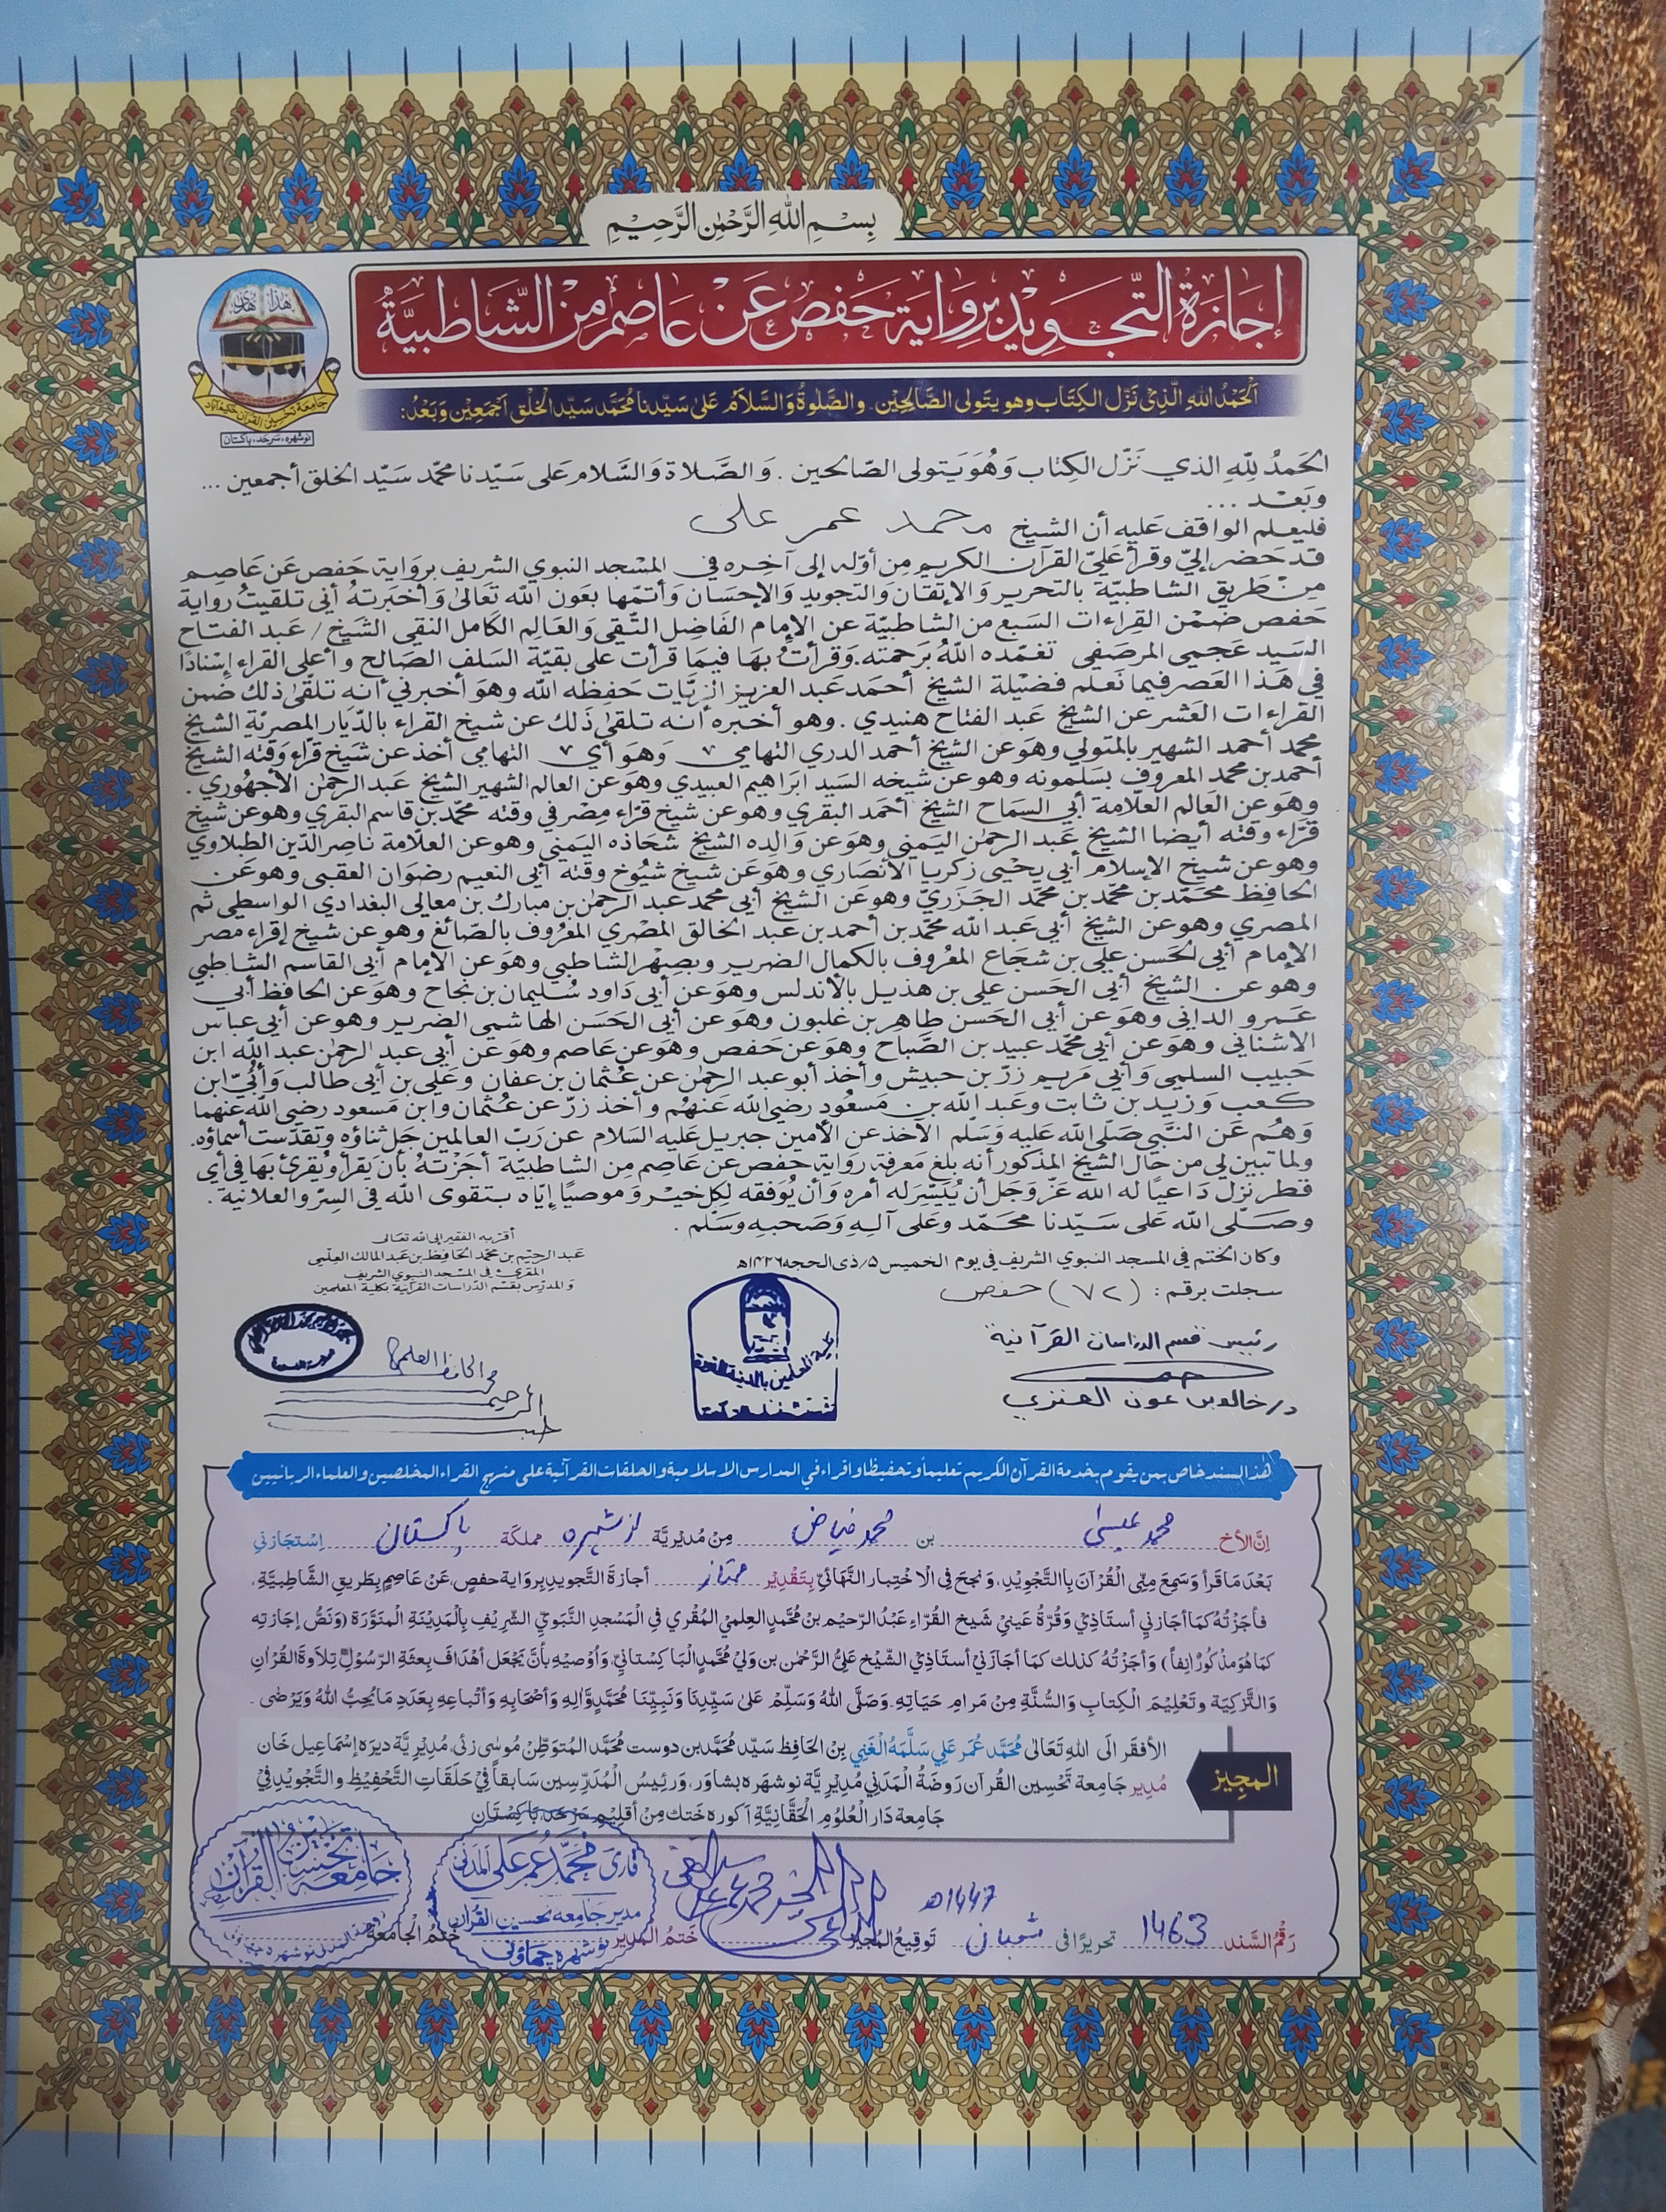 بِسْمِ اللهِ الرَّحْمٰنِ الرَّحِيْمِ
إجَازَةُ التَّجْوِيْدِ بِرِوَايَةِ حَفْصٍ عَنْ عَاصِمٍ مِنَ الشَّاطِبِيَّةْ
هٰذَا
جامعة تحسين القرآن حكيم آباد
نوشهره، سرحد، پاکستان
اَلْحَمْدُ للهِ الَّذِيْ نَزَّلَ الكِتَاب وهو يتَولى الصَّالِحِيْن. والصَّلٰوةُ وَالسَّلَامُ عَلىٰ سَيّدنا مُحَمَّد سَيّد الْخَلْق اَجْمَعِيْن وَبَعْدُ:
الحَمدُ لِلّٰهِ الذي نَزّل الكِتاب وَهُوَ يَتولى الصّالحين . وَالصَّلاة وَالسَّلام عَلى سَيّدنا محمّد سَيّد الخلق أجمعين ...
وبَعْد ...
فليعلم الواقف عَليه أن الشيخ محمد عمر على
قد حَضر إليّ وقرأ عَليّ القرآن الكريم مِن أوّله إلى آخِره في المسْجد النبوي الشريف برواية حَفص عَن عَاصِم
من طريق الشاطبيّة بالتحرير وَالإتقان وَالتجويد وَالإحسَان وَأتمّها بعَون الله تَعَالىٰ وَأخبَرتهُ أني تلقيتُ رواية
حَفص ضمْن القِراءات السَبع من الشاطبيّة عن الإمام الفَاضِل التّقي وَالعَالِم الكَامل النقي الشَيخ / عَبد الفتاح
السَيد عَجمي المرصَفي تغمّده اللهُ برَحمته. وَقرأتُ بهَا فيمَا قرأت على بقيّة السَلف الصَالح وأعلى القراء إسْنادًا
في هَذا العَصر فيما نَعلم فضيلة الشيخ أحمَد عَبد العزيز الزيّات حَفِظه الله وهوَ أخبرني أنه تلقّى ذلك ضمن
القراءات العَشر عن الشيخ عَبد الفتاح هنيدي . وهو أخبره أنه تلقى ذَلك عن شيخ القراء بالدّيار المصريّة الشيخ
محمد أحمد الشهير بالمتولي وهوَ عن الشيخ أحمد الدري التهامي ٧ وَهوَ أي ٧ التهامي أخذ عن شيَخ قرّاء وَقته الشيخ
أحمد بن محمد المعروف بسَلمونه وهو عن شيخه السَيد ابرَاهيم العبيدي وهوَ عن العالم الشهير الشيخ عَبد الرحمٰن الأجهُوري .
وهوَ عن العَالم العلّامة أبي السمَاح الشيخ أحمَد البقري وهوَ عن شيخ قرّاء مصْر في وقته محمّد بن قاسم البقري وهوَ عن شيخ
قرّاء وقته أيضا الشيخ عَبد الرحمٰن اليمَني وهوَ عن وَالِده الشيخ شحَاذه اليمَني وهوَ عن العلّامة ناصر الدّين الطبلاوي
وهوَ عن شيخ الإسلام أبي يحْيى زكريا الأنصَاري وهوَ عَن شيخ شيُوخ وقته أبي النعيم رضوَان العقبى وهوَ عَن
الحَافِظ محَمّد بن محمّد بن محمّد الجَزَريّ وهوَ عَن الشيخ أبي محمد عبد الرحمٰن بن مبارك بن معالي البغدادي الواسطي ثم
المصري وهوَ عن الشيخ أبي عَبد الله محمّد بن أحمد بن عَبد الخالق المصْري المعْرُوف بالصّائغ وهوَ عن شيخ إقراء مصر
الإمام أبي الحَسن علي بن شجَاع المعْرُوف بالكمال الضرير وبصِهْر الشاطبي وهوَ عن الإمام أبي القاسم الشاطبي
وهوَ عن الشيخ أبي الحَسن علي بن هذيل بالأندلس وهوَ عن أبي دَاود سُليمان بن نجاح وهوَ عن الحافظ أبي
عَمرو الداني وهوَ عن أبي الحَسن طاهر بن غلبون وهوَ عن أبي الحَسَن الهاشمي الضرير وهوَ عن أبي عباس
الاشناني وهوَ عن أبي محمّد عبيد بن الصَّباح وهوَ عن حَفص وهوَ عن عاصم وهوَ عن أبي عبد الرحمٰن عبد الله ابن
حَبيب السلمي وَأبي مَريم زرّ بن حبيش وأخذ أبو عبد الرحمٰن عن عُثمان بن عفان وعَلي بن أبي طالب وَأُبيّ ابن
كعب وَزيد بن ثابت وعَبد الله بن مَسعُود رضي الله عَنهُم وأخذ زرّ عن عُثمان وابن مَسعود رضي الله عنهما
وَهُم عَن النّبي صَلّى الله عَليه وَسَلّم الآخذ عن الأمين جبريل عَليه السَلام عن رَبّ العالمين جَل ثناؤه وتقدّست أسماؤه.
ولما تبين لي من حَال الشيخ المذكور أنه بلغ مَعرفة رواية حفص عن عَاصم مِن الشاطبيّة أجَزْتهُ بأن يَقرأ ويُقرئ بهَا في أي
قطر نزل دَاعيًا له الله عَزّ وَجَل أن يُيَسّر له أمره وَأن يُوَفقه لِكل خيْر وموصيًا إيّاه بتقوى الله في السِرّ والعلانية .
وصَلّى الله عَلى سَيّدنا محمّد وَعَلى آلِه وَصَحبِهِ وَسَلّم .
أقرّ به الفقير إلى الله تعالى
عبد الرحيم بن محمّد الحَافِظ بن عَبد المالك العلمي
المقرئ في المَسجد النبوي الشريف
وَالمدَرّس بقسْم الدّراسَات القرآنية بكليّة المعَلّمين
وكان الختم في المسجد النبوي الشريف في يوم الخميس ٥/ذى الحجه ١٤٢٦هـ
سجلت برقم : (٧٢) حفص
رئيس قسم الدراسات القرآنية
د/ خالد بن عون العنزي
كلية المعلمين بالمدينة المنورة
هٰذا السند خاص بمن يقوم بخدمة القرآن الكريم تعليماً وتحفيظاً واقراء في المدارس الاسلامية والحلقات القرآنية على منهج القراء المخلصين والعلماء الربانيين
اِنَّ الأخ محمد عیسیٰ بن محمد فیاض مِنْ مُدْیَرِیَّة نوشہرہ مملكَة پاکستان اِسْتجَازَنِي
بَعْدَ مَا قَرأ وَسَمِعَ مِنِّى الْقُرْآنَ بِاالتَّجْوِيْدِ، وَنَجَحَ فِى الْاخْتِبار النَّهَائىّ بِتَقْدِيْر ممتاز أجازةَ التَّجْوِيدِ برِوَايةِ حفصٍ، عَنْ عَاصِمٍ بِطَرِيقِ الشَّاطِبِيَّةِ،
فأجَزْتُهُ كمَا أجَازَني أستَاذِيْ وَقُرَّةُ عَينِيْ شَيخ القُرّاءِ عَبْدُ الرّحِيْم بن مُحَمَّدٍ العِلمِيْ المُقْرِي فِي الْمَسْجدِ النَّبَوِيّ الشَّرِيْفِ بِالْمَدِيْنَةِ الْمنَوَّرَة (وَنَصُّ إجَازَتِه
كمَا هُوَ مذْكُورٌ اٰنِفاً) وَأَجَزْتُهُ كذلك كمَا أجَازَنِيْ أستَاذِيْ الشَّيْخ عَلِىُّ الرَّحْمٰن بن وَلِيْ مُحَمَّدٍ البَاكِسْتانِيْ، وَأُوْصِيهِ بِأَنْ يَجْعَل أهْدَافَ بِعثَةِ الرّسُوْلِ تِلَاوَةَ القُرْآنِ
وَالتَّزْكِيَة وتَعْلِيْمَ الْكِتابِ وَالسُّنَّةِ مِنْ مَرامِ حَيَاتِهِ. وَصَلَّى اللهُ وَسَلَّمَ عَلىٰ سَيِّدِنَا وَنَبِيِّنَا مُحَمَّدٍ وَّاٰلِهِ وَأصْحَابِهِ وَأتْبَاعِهِ بِعَدَدِ مَا يُحِبُّ اللهُ وَيَرْضٰى .
المجِيز
الأفقَر الَى اللهِ تَعَالىٰ مُحَمَّد عُمَر عَلِي سَلَّمَهُ الْغَنِي بِنْ الحَافِظ سَيّد مُحَمَّد بن دوست مُحَمَّد المُتوَطِّنْ مُوسٰى زئى، مُدْيْرِيَّة ديرَه إسْمَاعِيل خَان
مُدِير جَامِعة تَحْسِين القُرآن رَوضَةُ الْمَدَنِي مُدِيْرِيَّة نوشهَره بشاوَر، وَرَئِيسُ الْمُدَرِّسِين سَابقاً فِيْ حَلَقَاتِ التَّحْفِيْظِ وَالتَّجْوِيْدِ فِيْ
جَامِعة دَار الْعُلُوْمِ الْحَقَّانِيَّةِ اَكورَه خَتك مِنْ أقلِيْمِ سَرحَد بَاكِسْتَان
رَقْمُ السَّند 1463 تحريرًا فى شعبان ١٤٤٧هـ تَوقِيعُ المُجيز خَتمُ المُدير خَتمُ الْجَامعة
قاری مُحَمَّد عُمَر عَلی المَدَنی
مدیر جَامعه تحسین القُرآن
نوشهره چھاؤنی
جَامِعَه تَحْسِيْنُ القُرآن